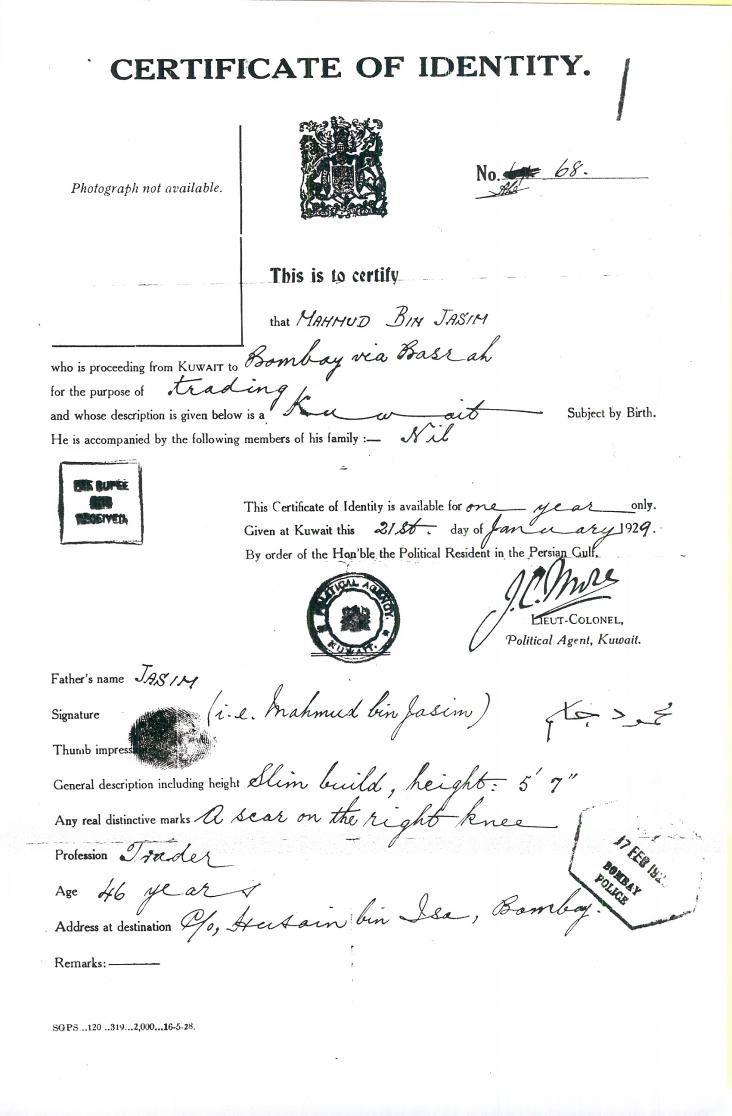 CERTIFICATE OF IDENTITY.
Photograph not available.
No. 68.
This is to certify
that MAHMUD BIN JASIM
who is proceeding from KUWAIT to Bombay via Basrah
for the purpose of trading
and whose description is given below is a Kuwait Subject by Birth.
He is accompanied by the following members of his family :— Nil
RUPEE
RECEIVED.
This Certificate of Identity is available for one year only.
Given at Kuwait this 21st. day of January 1929.
By order of the Hon'ble the Political Resident in the Persian Gulf.
POLITICAL AGENCY.
KUWAIT.
J.C. More
LIEUT-COLONEL,
Political Agent, Kuwait.
Father's name JASIM
Signature (i.e. Mahmud bin Jasim) محمود جاسم
Thumb impress
General description including height Slim build, height:- 5' 7"
Any real distinctive marks A scar on the right knee
Profession Trader
17 FEB
BOMBAY
POLICE
Age 46 years
Address at destination C/o, Husain bin Isa, Bombay.
Remarks: ———
SGPS...120 ..319...2,000...16-5-28.